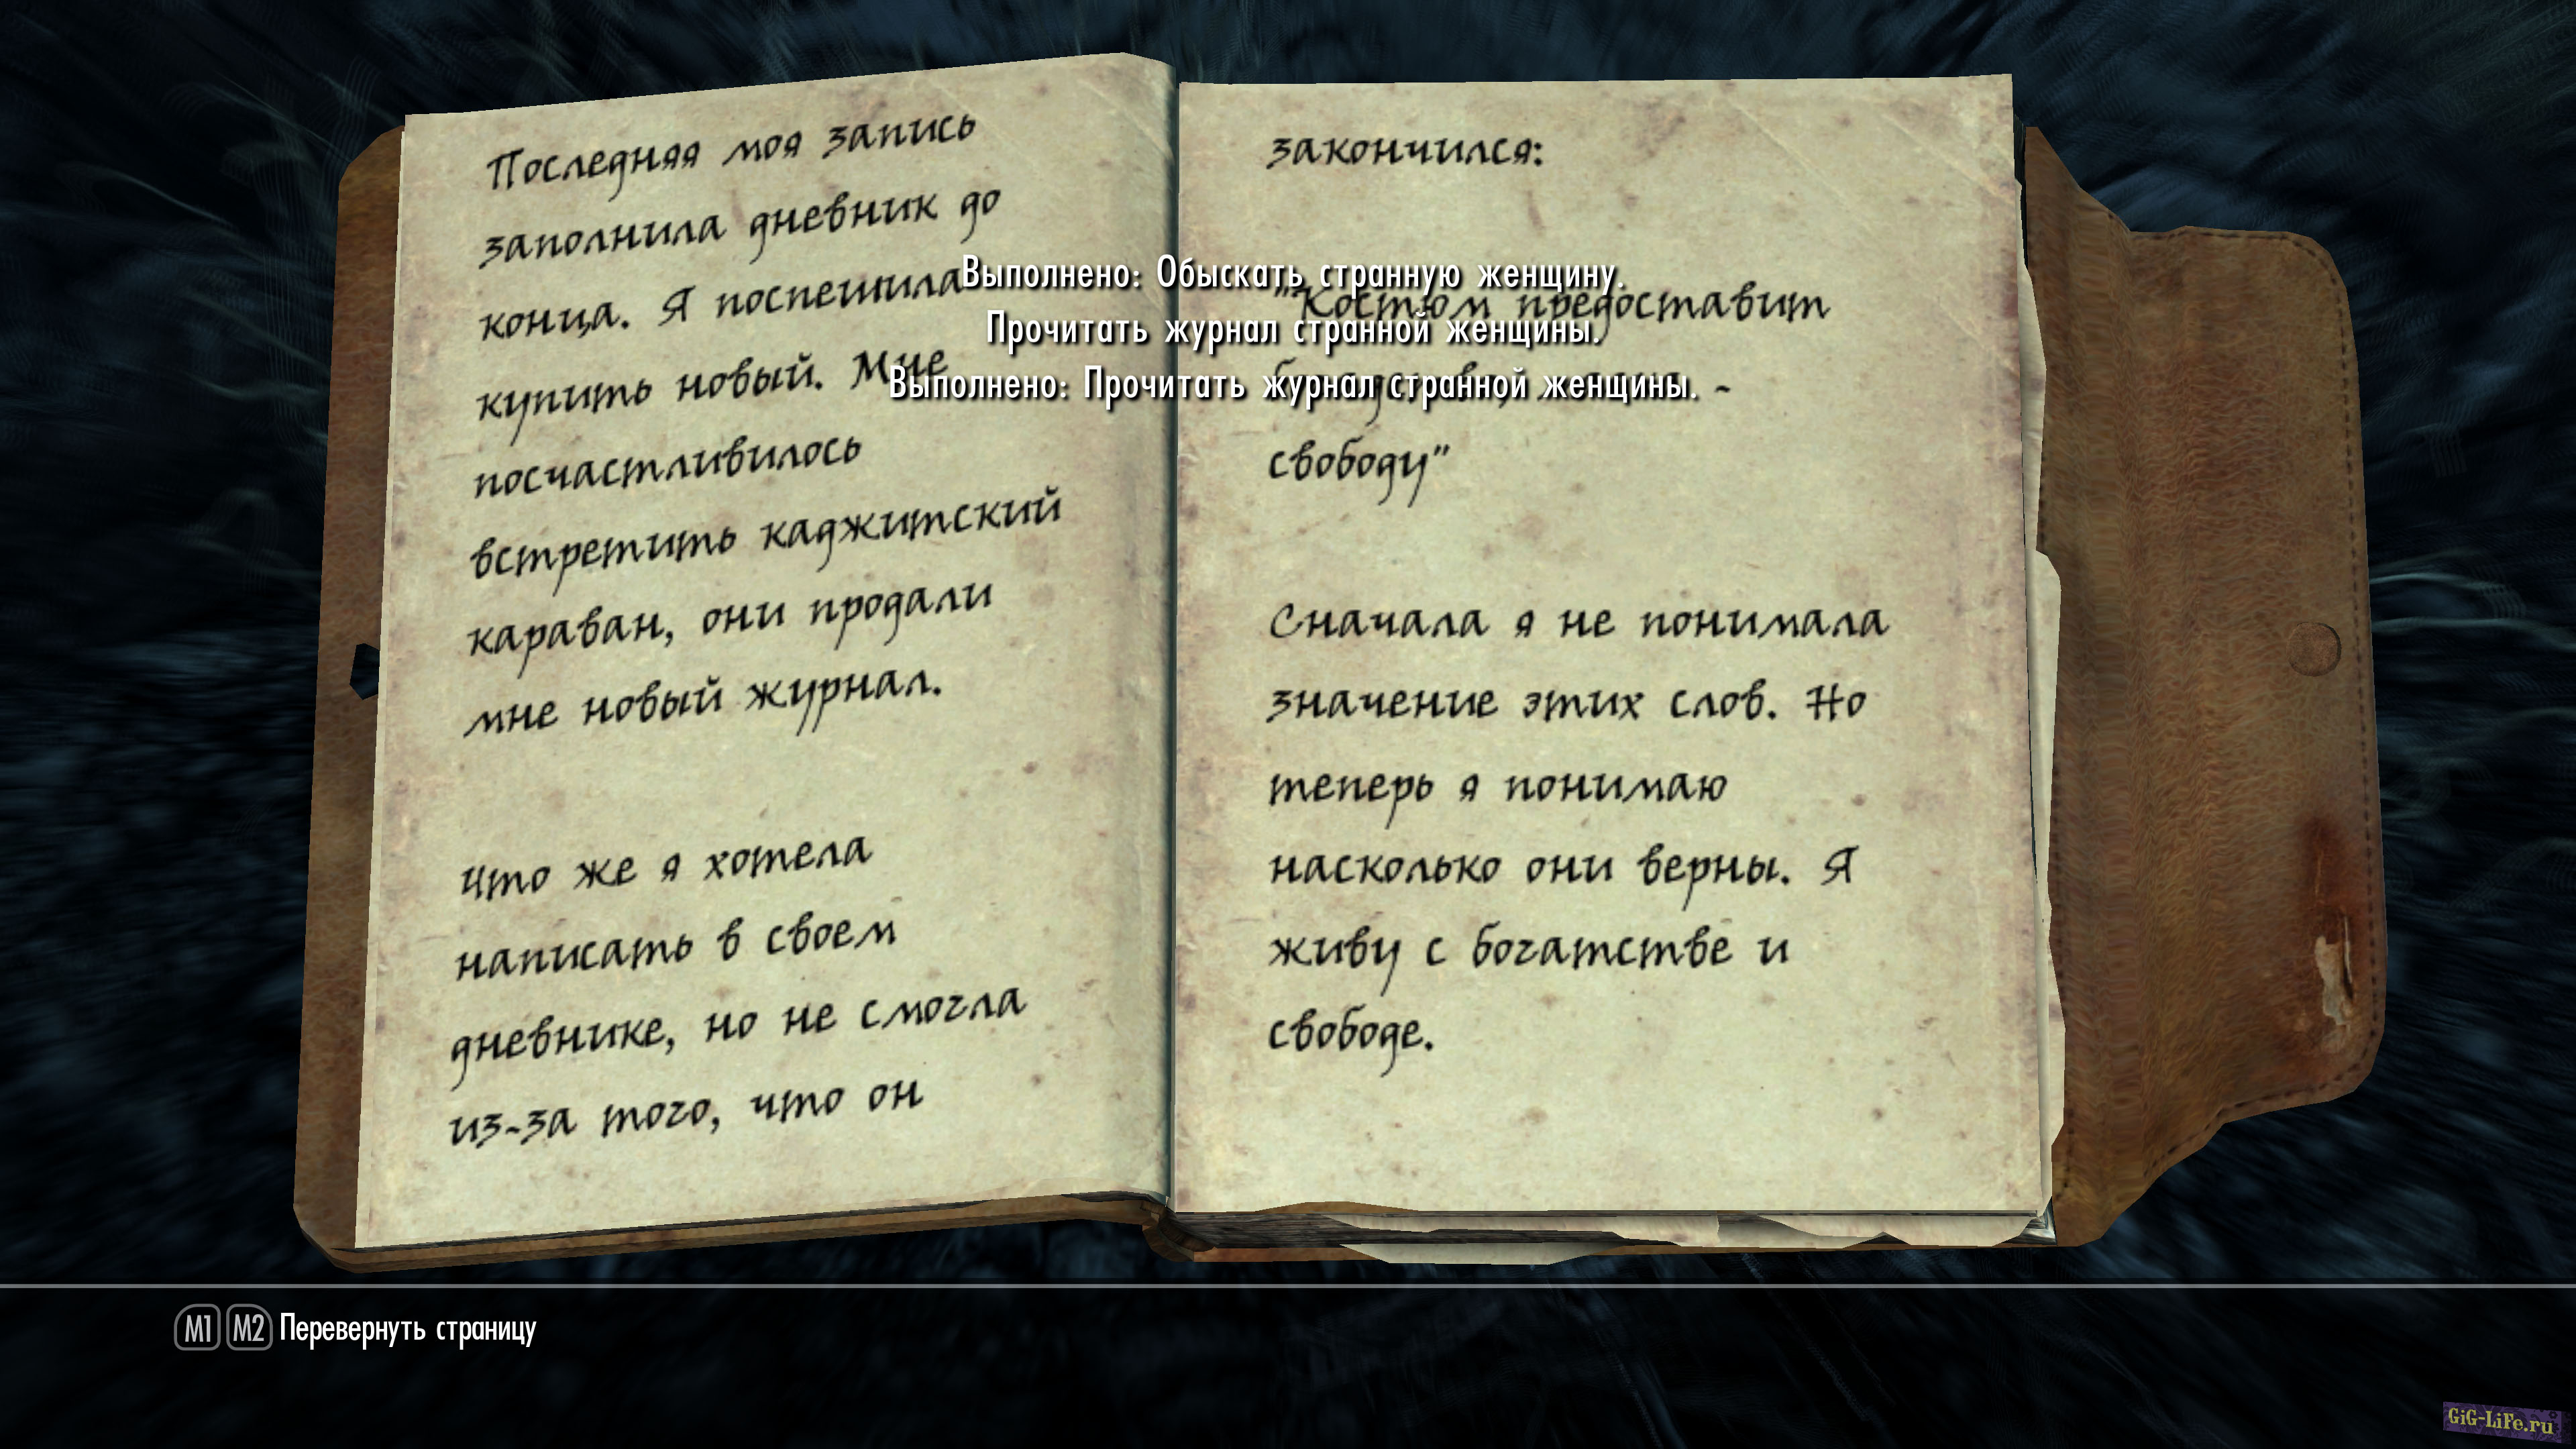 Последняя моя запись
заполнила дневник до
конца. Я поспешила
купить новый. Мне
посчастливилось
встретить каджитский
караван, они продали
мне новый журнал.
Что же я хотела
написать в своем
дневнике, но не смогла
из-за того, что он
закончился:
"Костюм предоставит
-
свободу"
Сначала я не понимала
значение этих слов. Но
теперь я понимаю
насколько они верны. Я
живу с богатстве и
свободе.
Выполнено: Обыскать странную женщину.
Прочитать журнал странной женщины.
Выполнено: Прочитать журнал странной женщины.
M1 M2 Перевернуть страницу
GiG-LiFe.ru